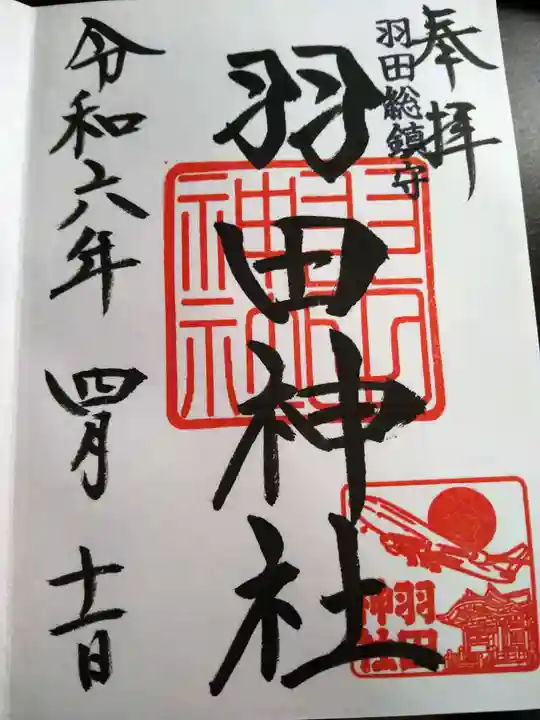 奉拝
羽田総鎮守
羽田神社
羽田
神社
令和六年 四月 十一日